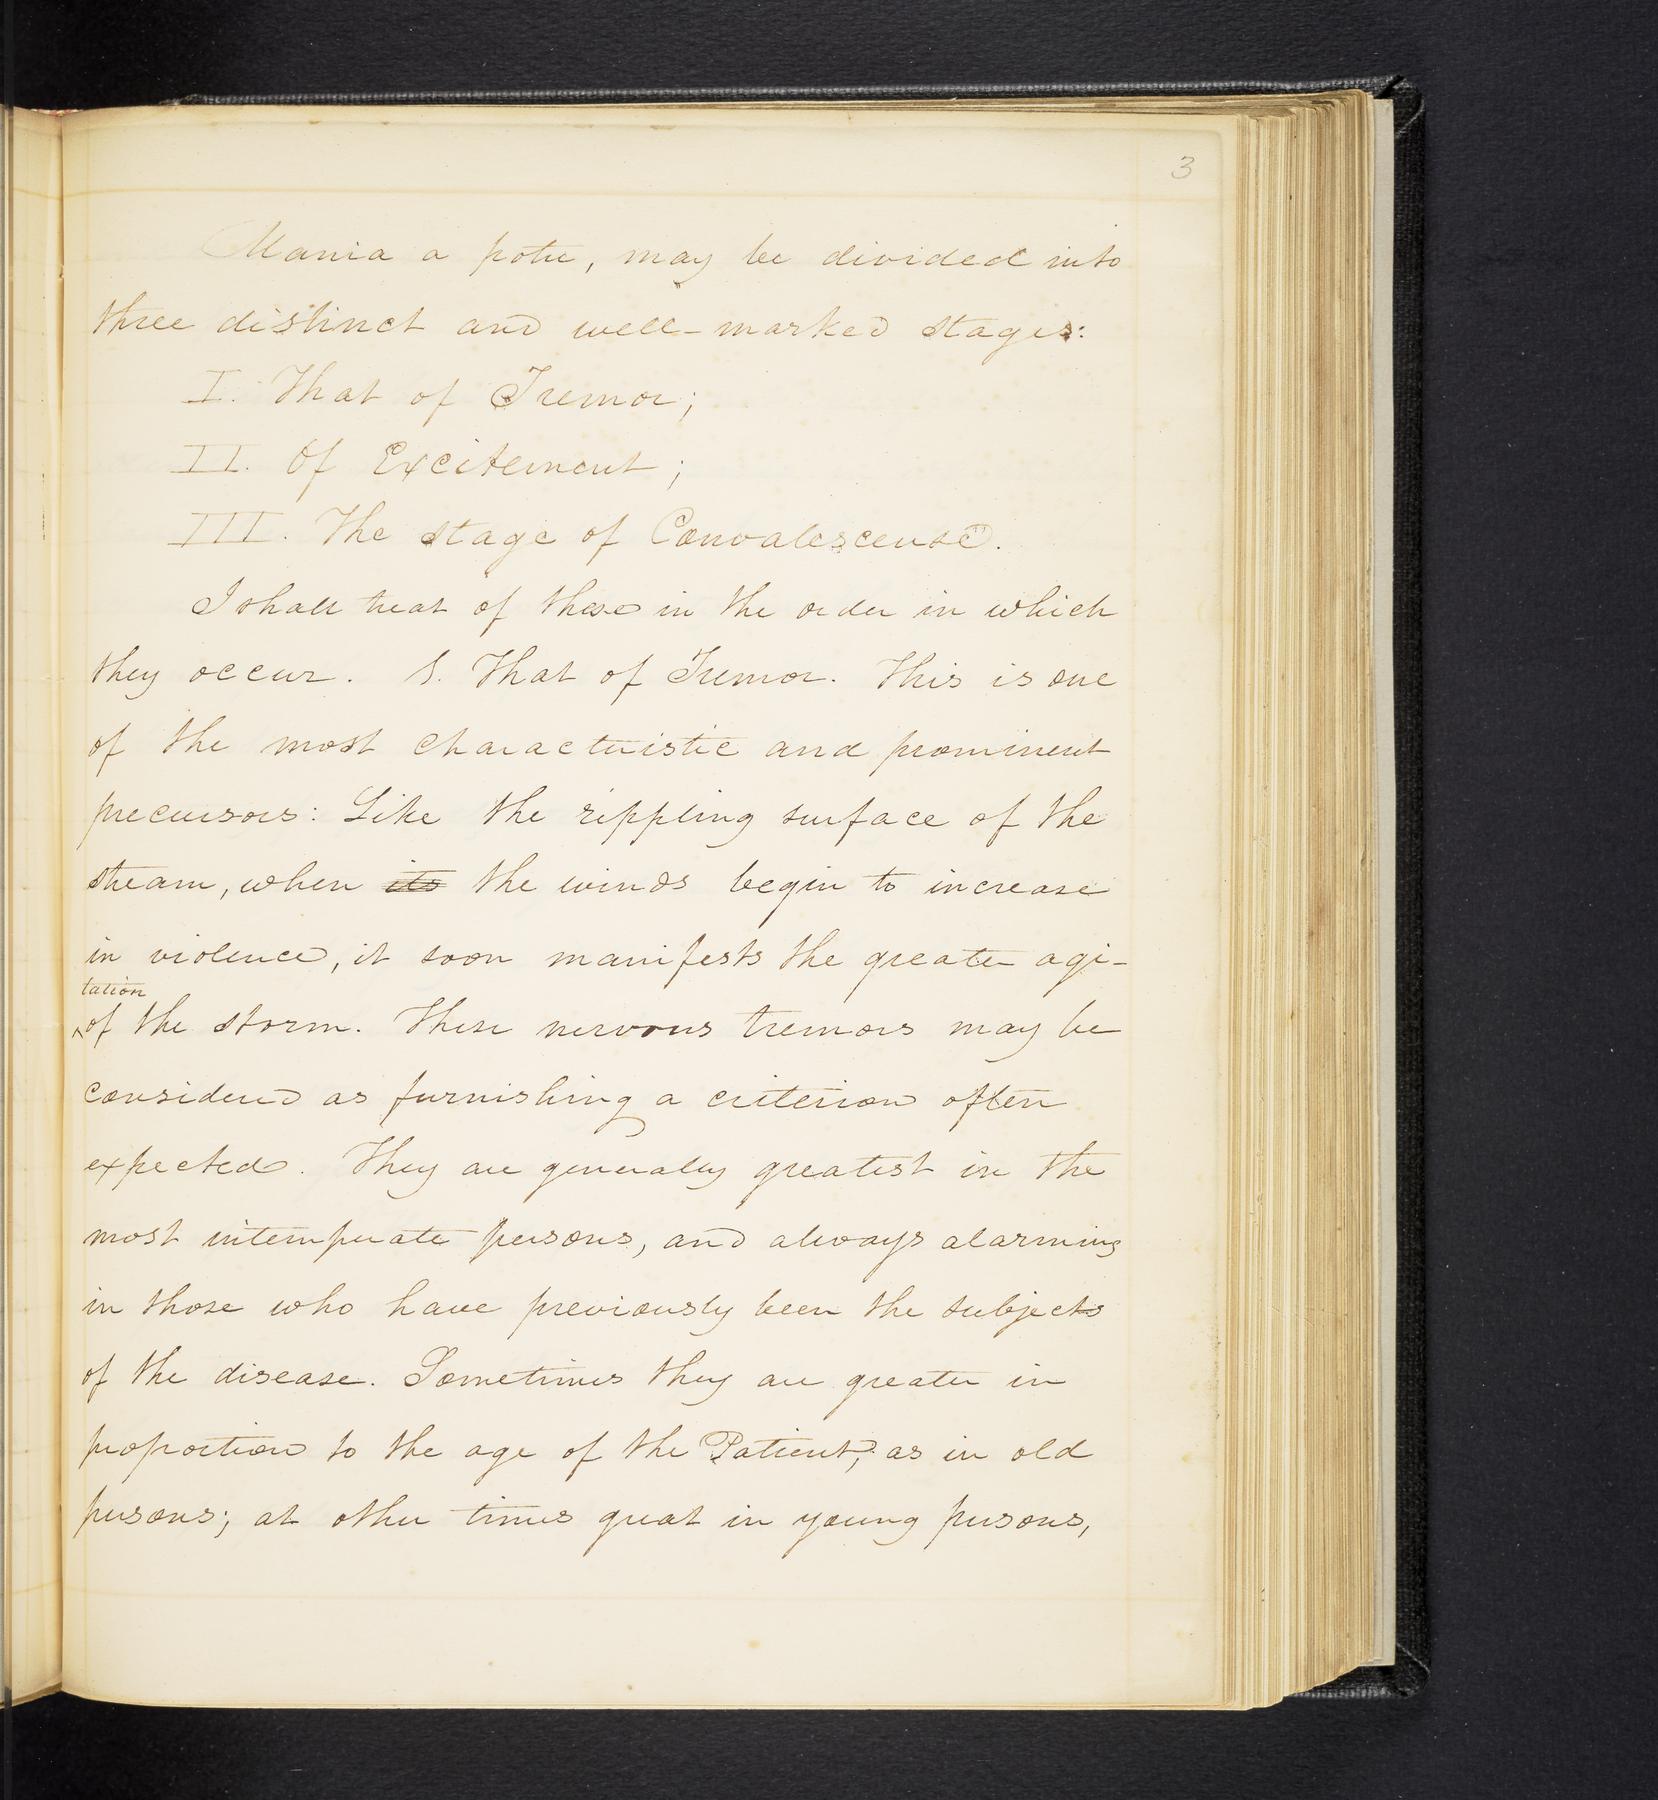 3
Mania a potu, may be divided into
three distinct and well-marked stages:
I. That of Tremor;
II. Of Excitement;
III. The stage of Convalescense.
I shall treat of these in the order in which
they occur. I. That of Tremor. This is one
of the most characteristic and prominent
precursors: Like the rippling surface of the
stream, when its the winds begin to increase
in violence, it soon manifests the greater agi-
tation
^of the storm. These nervous tremors may be
considered as furnishing a criterion often
expected. They are generally greatest in the
most intemperate persons, and always alarming
in those who have previously been the subjects
of the disease. Sometimes they are greater in
proportion to the age of the Patient, as in old
persons; at other times great in young persons,